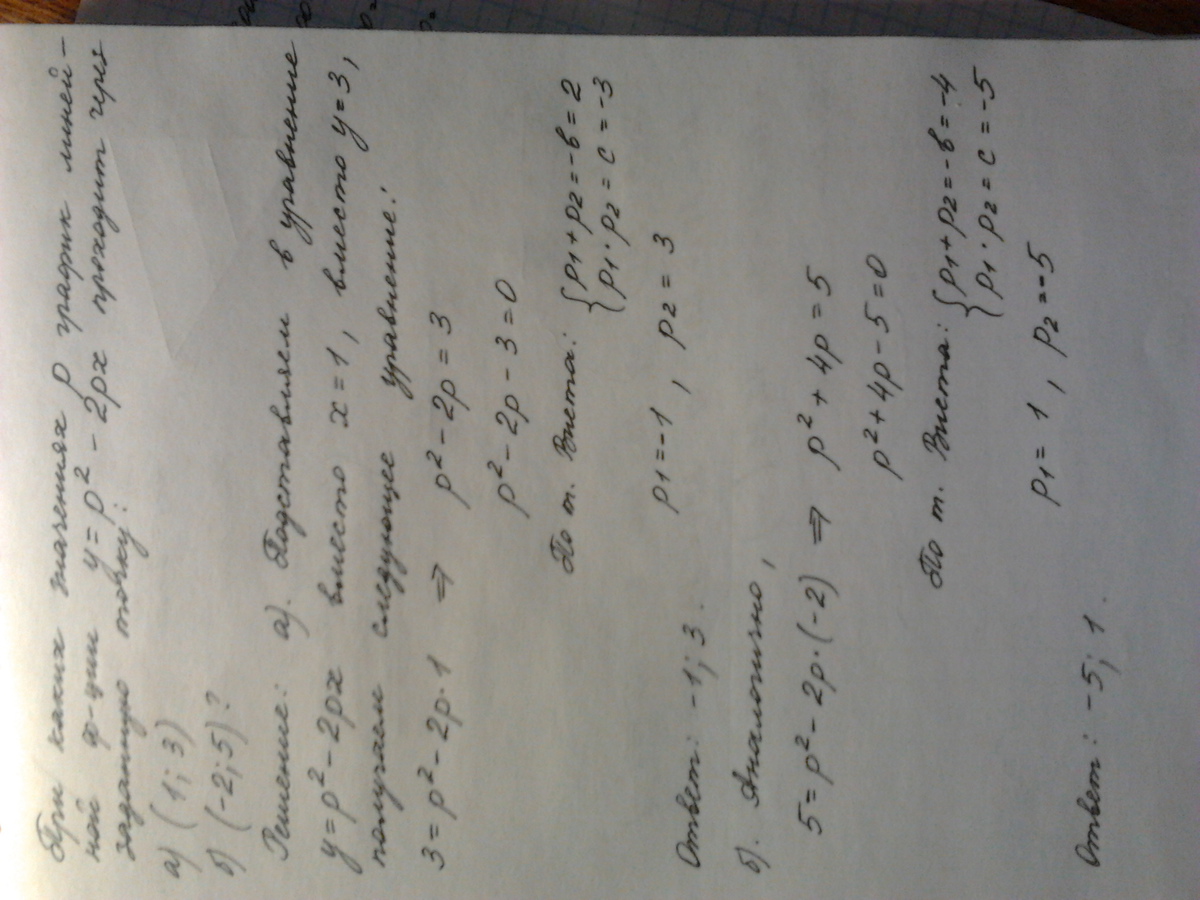 При каких значениях р график линей-
ной ф-ции y = p² - 2px проходит через
заданную точку:
а) (1; 3)
б) (-2; 5)?
Решение: а). Подставляем в уравнение
y = p² - 2px вместо x = 1, вместо y = 3,
получаем следующее уравнение:
3 = p² - 2p·1 ⇒ p² - 2p = 3
p² - 2p - 3 = 0
По т. Виета: { p1 + p2 = -в = 2
p1 · p2 = c = -3
p1 = -1, p2 = 3
Ответ: -1; 3.
б). Аналогично,
5 = p² - 2p·(-2) ⇒ p² + 4p = 5
p² + 4p - 5 = 0
По т. Виета: { p1 + p2 = -в = -4
p1 · p2 = c = -5
p1 = 1, p2 = -5
Ответ: -5; 1.